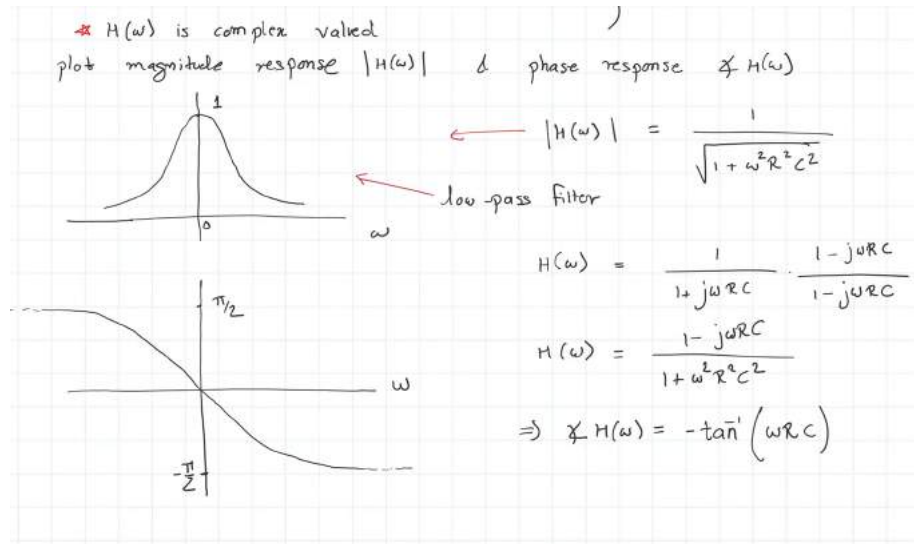 * H(ω) is complex valued
plot magnitude response |H(ω)| & phase response ∡ H(ω)
1
|H(ω)| = 1 / √(1 + ω²R²C²)
low-pass filter
0
ω
H(ω) = 1 / (1 + jωRC) · (1 - jωRC) / (1 - jωRC)
π/2
H(ω) = (1 - jωRC) / (1 + ω²R²C²)
ω
⇒ ∡ H(ω) = -tan⁻¹ (ωRC)
-π/2